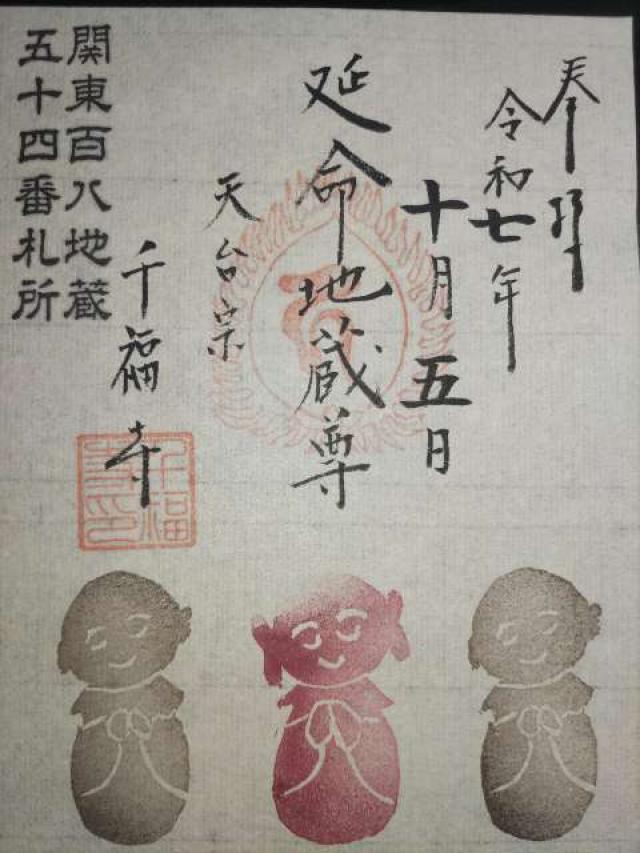 奉拝
令和七年
十月五日
延命地蔵尊
天台宗
千福寺
関東百八地蔵
五十四番札所
千福
寺印